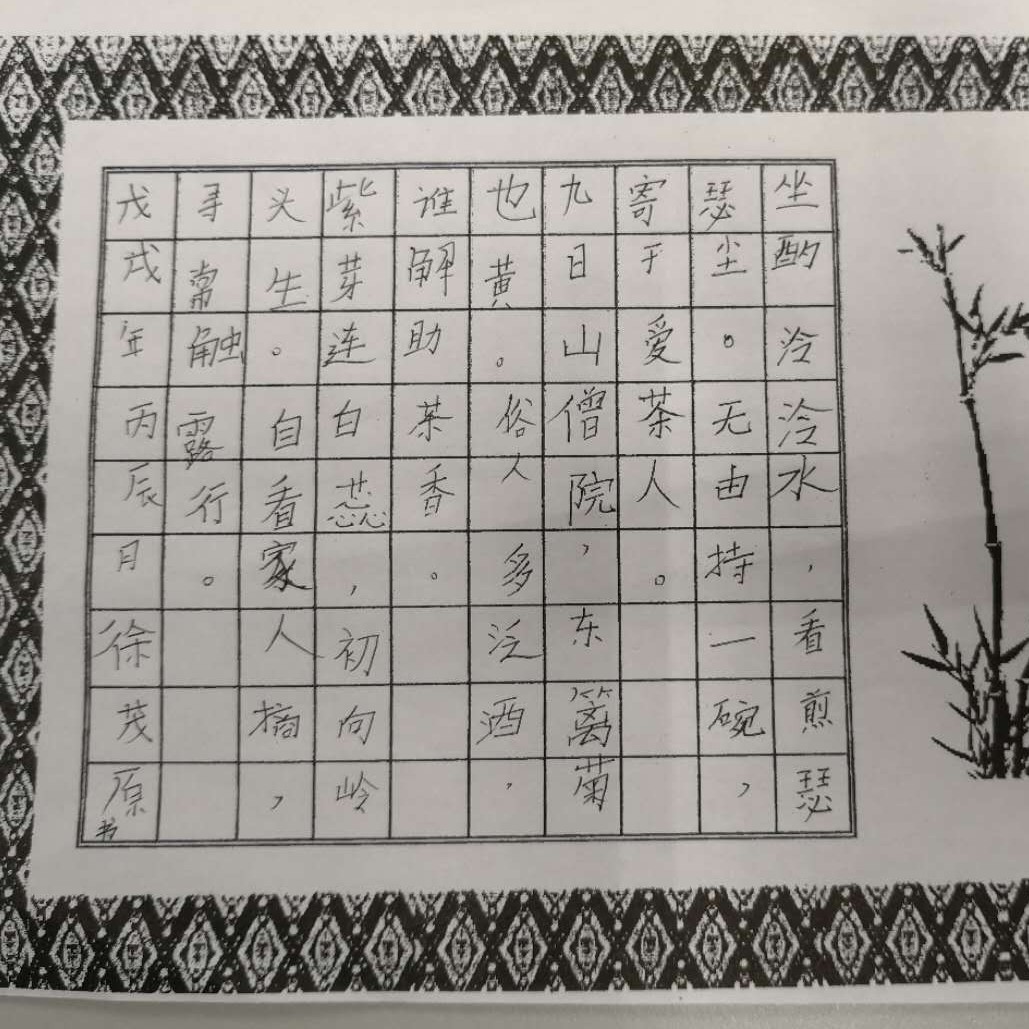 坐酌泠泠水,看煎瑟
瑟尘。无由持一碗,
寄于爱茶人。
九日山僧院,东篱菊
也黄。俗人多泛酒,
谁解助茶香。
紫芽连白蕊,初向岭
头生。自看家人摘,
寻常触露行。
戊戌年丙辰月徐茂原书